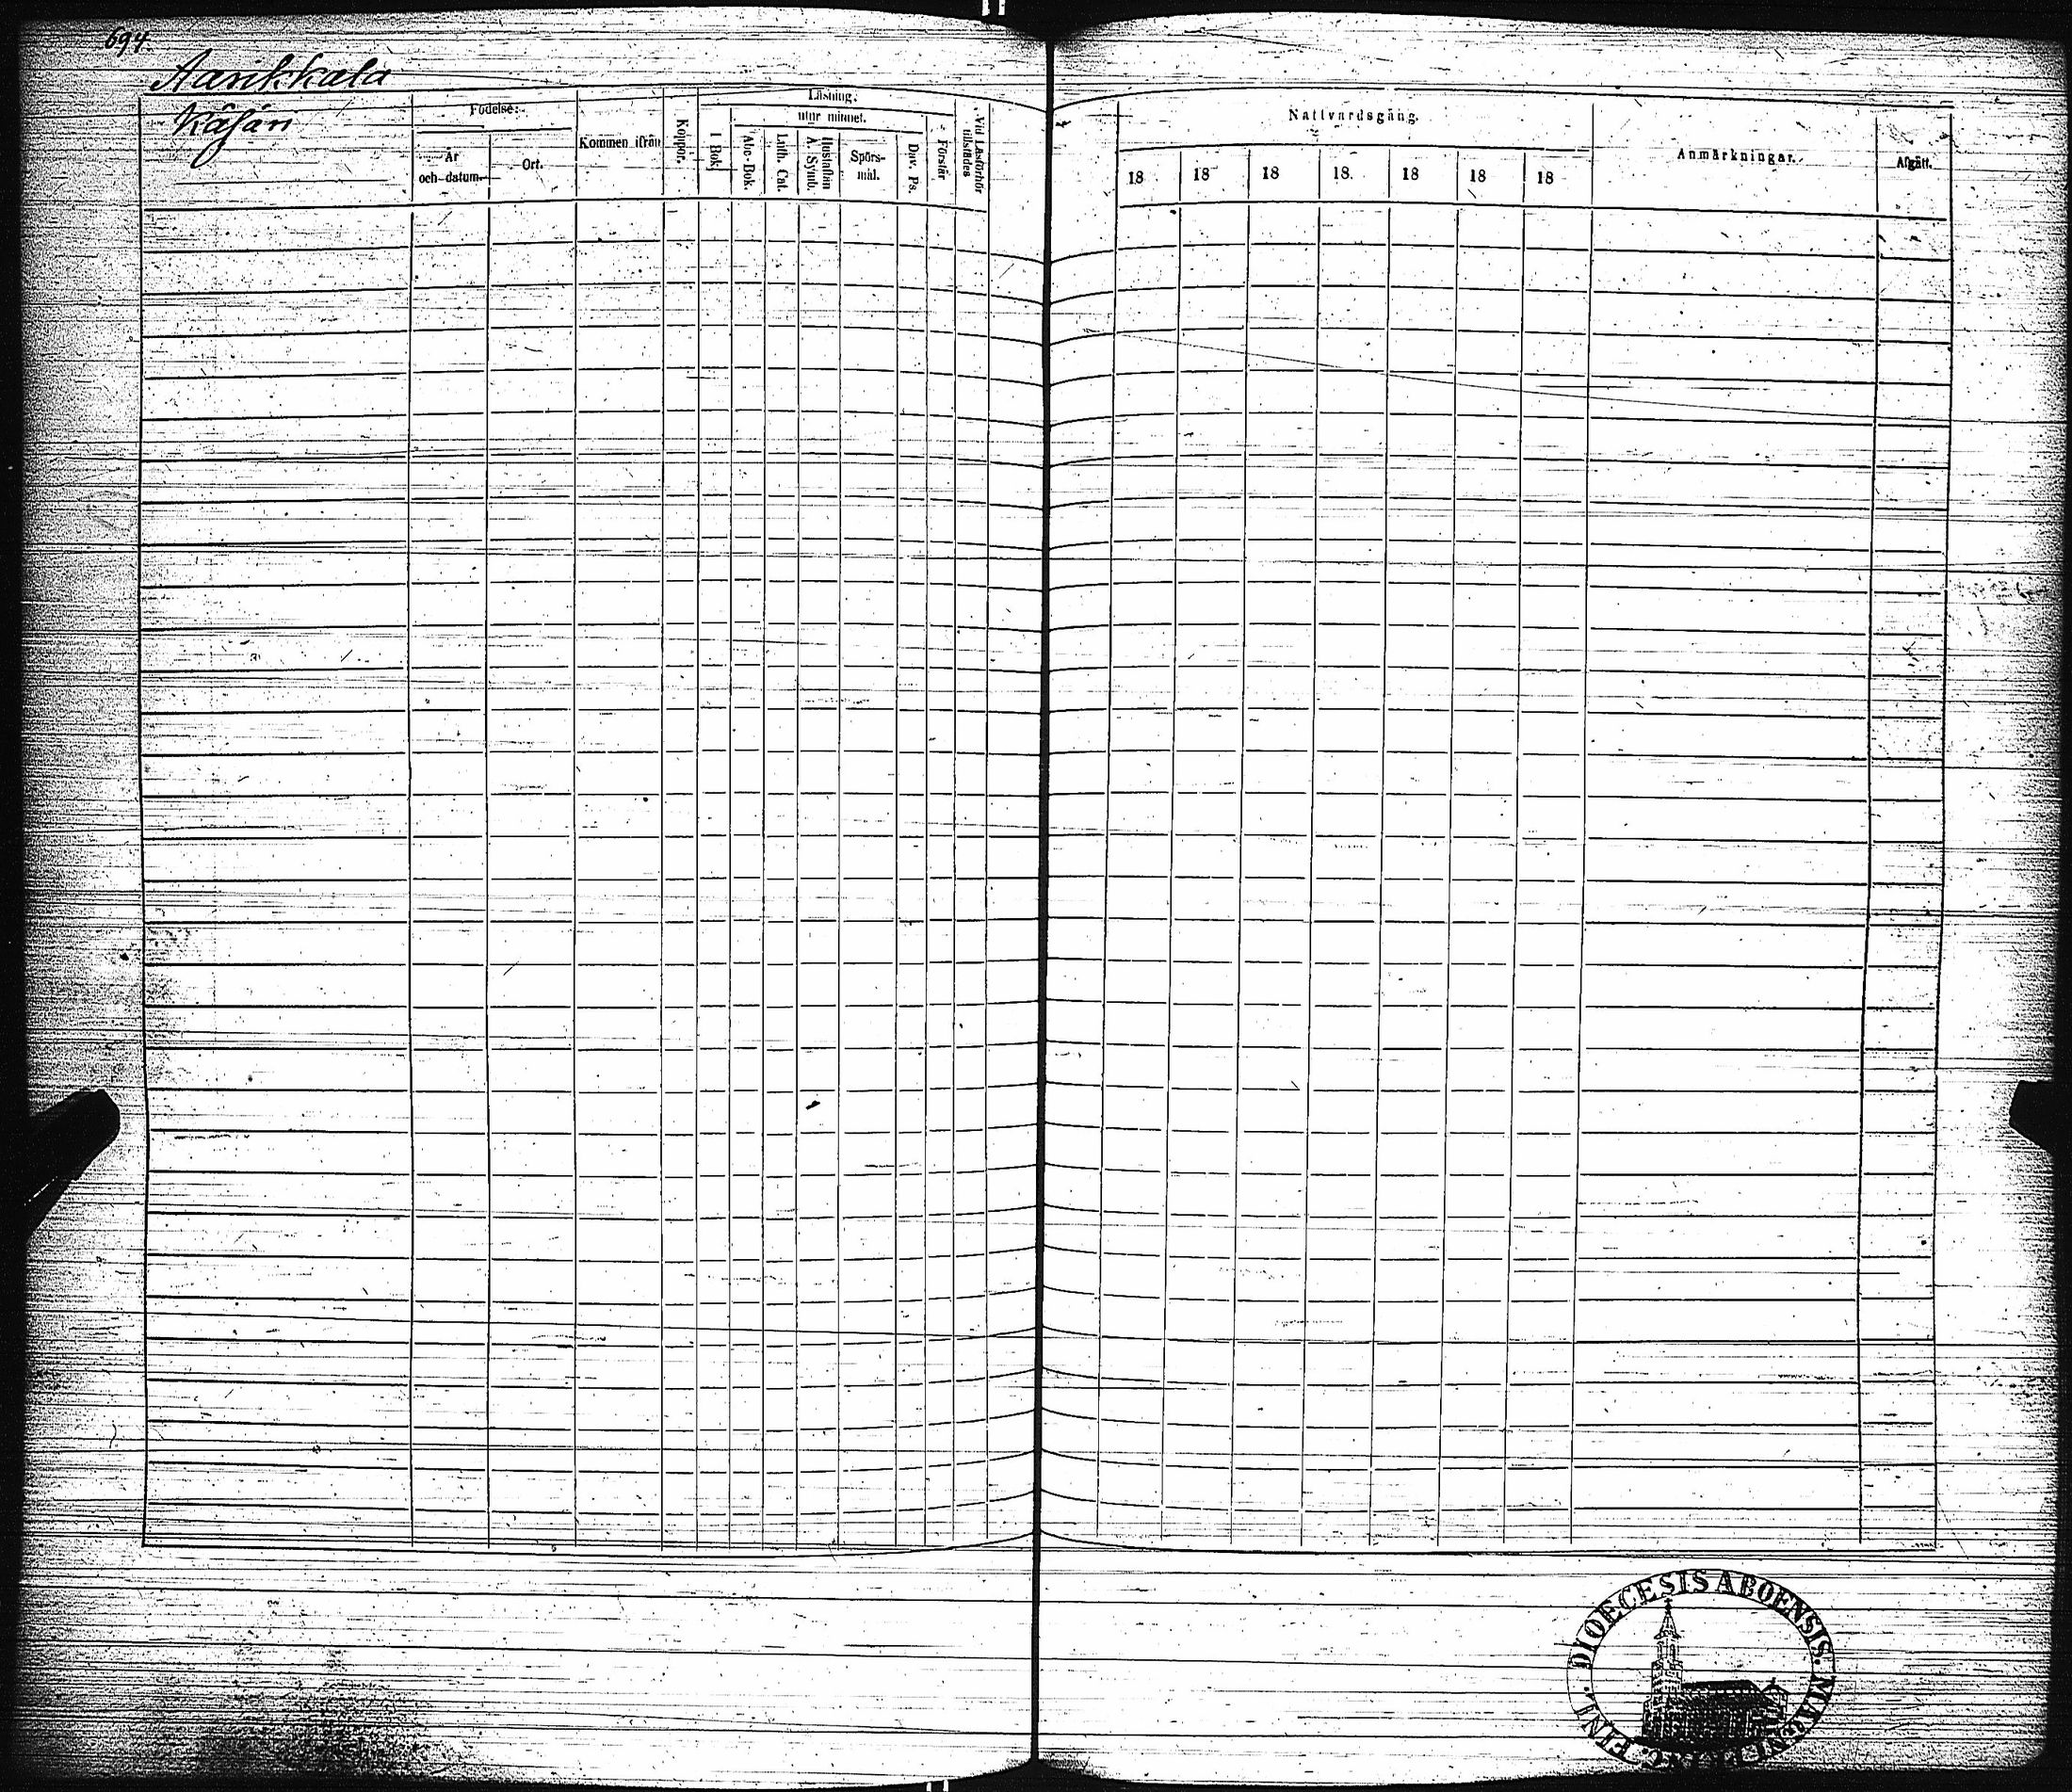 694.
Aarikkala
Käsän
Födelse:
År
och datum.
Ort.
Kommen ifrån
Koppor.
Läsning.
I Bok.
utur minnet.
Abc-Bok.
Luth. Cat.
Hustaflan
A. Symb.
Spörs-
mål.
Dav. Ps.
Förstår
Vid Läsförhör
tillstädes
Nattvardsgång.
18 18 18 18. 18 18 18
Anmärkningar.
Afgått.
DIOECESIS ABOENSIS. MAGNI FINL.